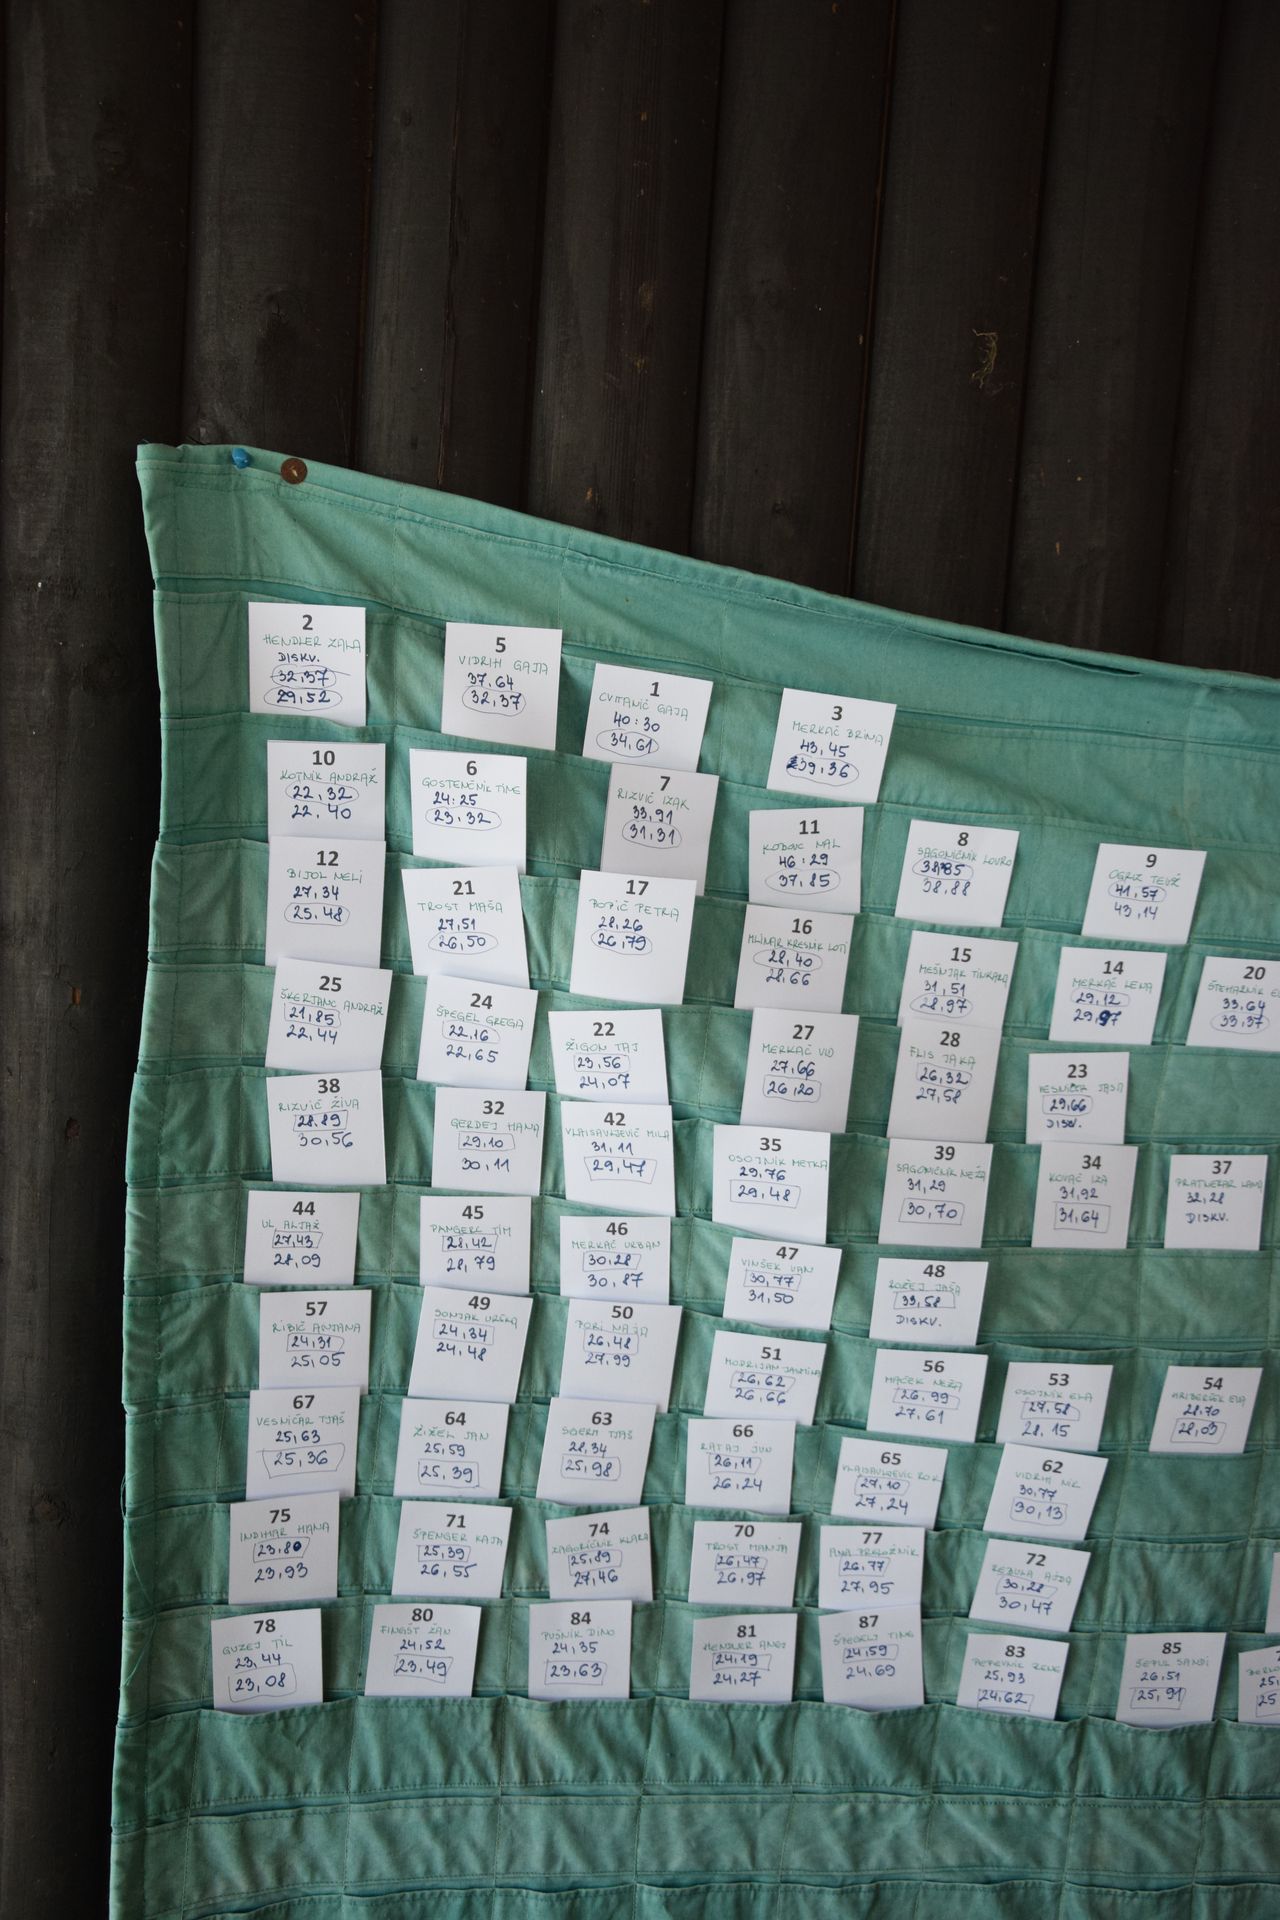 2
HENDLER ZALA
DISKV.
32,37
29,52
5
VIDRIH GAJA
37,64
32,37
1
CVITANIČ GAJA
40:30
34,61
3
MERKAČ BRINA
43,45
39,36
10
KOTNIK ANDRAŽ
22,32
22,40
6
GOSTENČNIK TIME
24:25
23,32
7
RIZVIČ IZAK
33,91
31,31
11
KODOVC MAL
46:29
37,85
8
SAGONIČNIK LOVRO
38,85
38,88
9
OGRIZ TEVŽ
41,57
43,14
12
BIJOL NELI
27,34
25,48
21
TROST MAŠA
27,51
26,50
17
POPIČ PETRA
28,26
26,79
16
MLINAR KRESNIK LOTI
28,40
28,66
15
MEŠNJAK TINKARA
31,51
28,97
14
MERKAČ LENA
29,12
29,97
20
ŠTEHARNIK
33,64
33,37
25
ŠKERJANC ANDRAŽ
21,85
22,44
24
ŠPEGEL GREGA
22,16
22,65
22
ŽIGON TAJ
23,56
24,07
27
MERKAČ VID
27,66
26,20
28
FLIS JAKA
26,32
27,58
23
JAŠA
29,66
DISKV.
38
RIZVIČ ŽIVA
28,89
30,56
32
GERDEJ HANA
29,10
30,11
42
VLAISAVLJEVIČ MILA
31,11
29,47
35
OSOJNIK METKA
29,76
29,48
39
SAGONIČNIK NEŽA
31,29
30,70
34
KOVAČ IZA
31,92
31,64
37
PRATNEKAR LANA
32,28
DISKV.
44
UL ALJAŽ
27,43
28,09
45
PANGERC TIM
28,42
28,79
46
MERKAČ URBAN
30,28
30,87
47
VINŠEK VAN
30,77
31,50
48
ROŽEJ JAŠA
33,58
DISKV.
57
RIBIČ ANJANA
24,31
25,05
49
SONJAK URŠKA
24,34
24,48
50
PORI NAJA
26,48
27,99
51
MODRIJAN JASMINA
26,62
26,66
56
MAČEK NEŽA
26,99
27,61
53
OSOJNIK ELA
27,58
28,15
54
HRIBERŠEK EVA
28,70
28,03
67
VESNIČAR TJAŠ
25,63
25,36
64
ŽIŽEL JAN
25,59
25,39
63
TJAŠ
28,34
25,98
66
RATAJ JUN
26,11
26,24
65
VLAISAVLJEVIC ROK
27,10
27,24
62
VIDRIH NIK
30,77
30,13
75
INDIHAR HANA
23,80
23,93
71
ŠPENGER KAJA
25,39
26,55
74
ZAGORIČNIK KLARA
25,89
27,46
70
TROST MANJA
26,47
26,97
77
ANA PREGLOŽNIK
26,77
27,95
72
ŽEBULA AJDA
30,28
30,47
78
GUZEJ TIL
23,44
23,08
80
FINGŠT ŽAN
24,52
23,49
84
PUŠNIK DINO
24,35
23,63
81
HENDLER ANEJ
24,19
24,27
87
ŠPEGELJ TINE
24,59
24,69
83
PEPEVNIK ŽENE
25,93
24,62
85
ŠEPUL SANDI
26,51
25,91
25,
25,